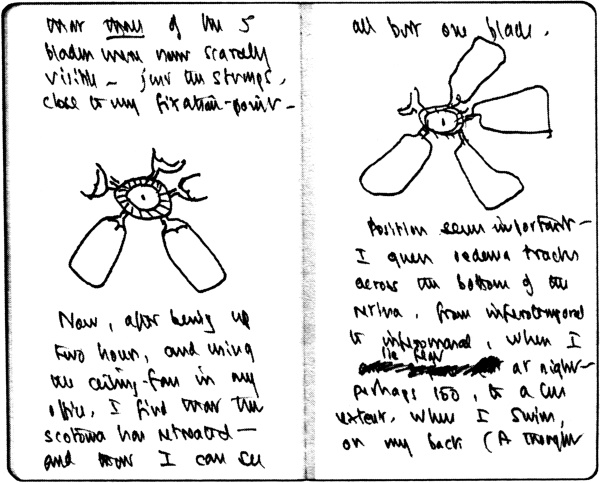 that three of the 5
blades were now scarcely
visible – just the stumps,
close to my fixation-point –
Now, after being up
two hours, and using
the ceiling-fan in my
office, I find that the
scotoma has retreated –
and now I can see
all but one blade.
Position seems important –
I guess oedema tracks
across the bottom of the
retina, from inferotemporal
to inferonasal, when I
lie flat
at night –
perhaps to a less
extent, when I swim,
on my back (A thought